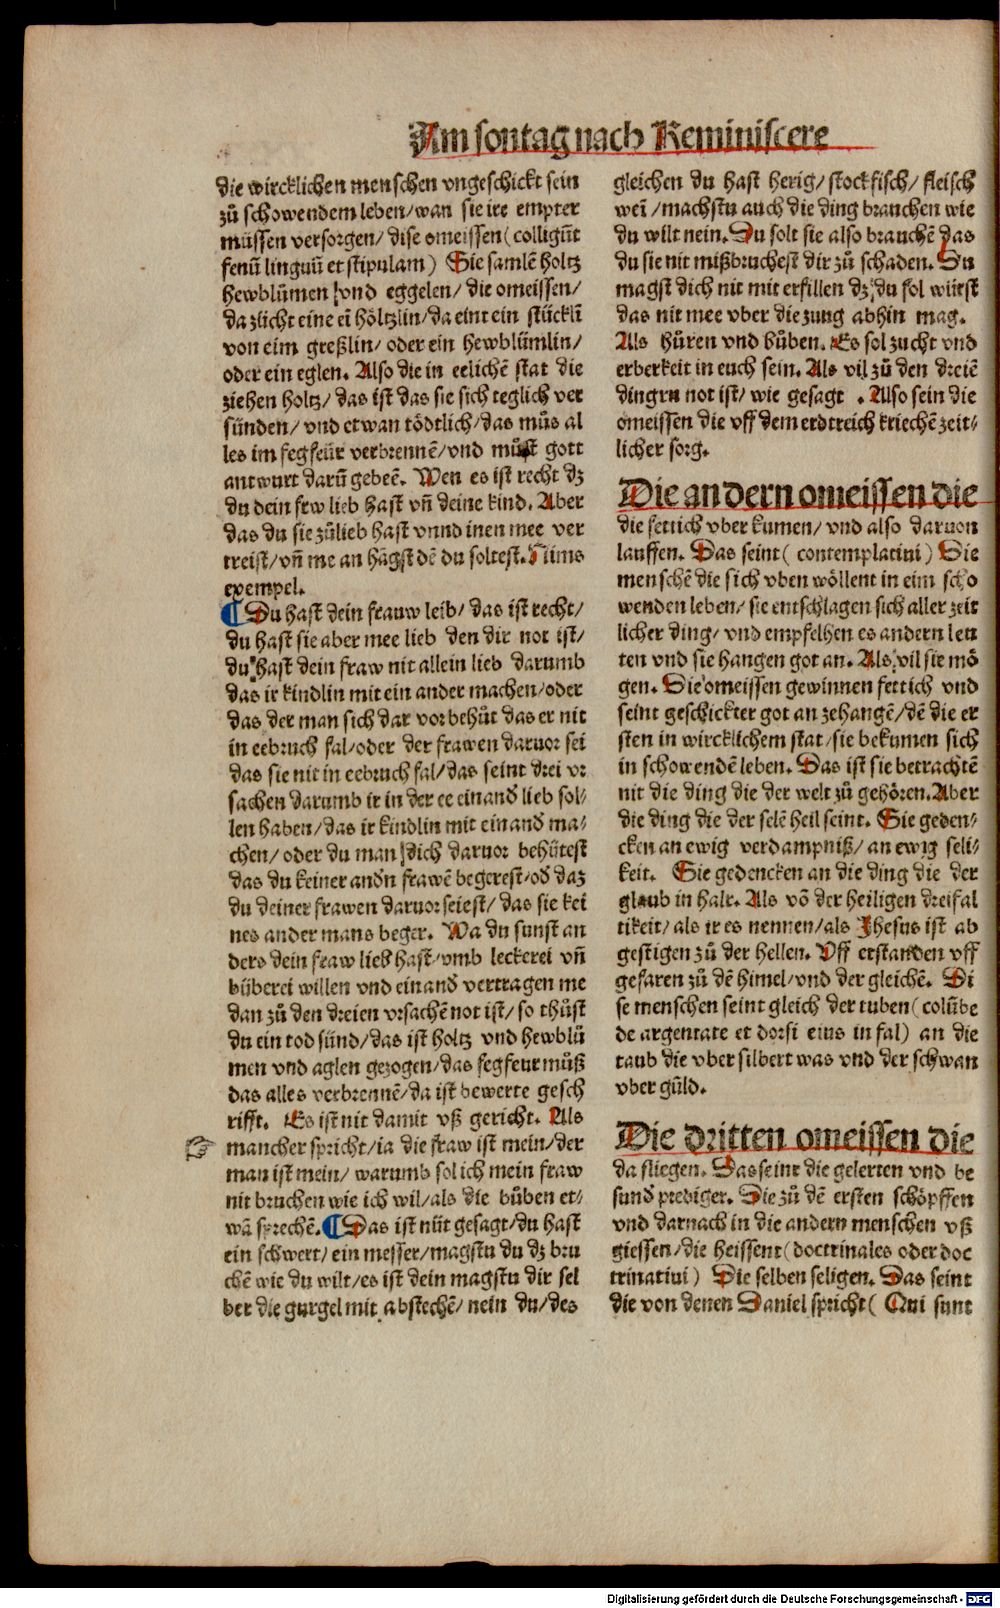 Am sontag nach Reminiscere
die wircklichen menschen vngeschickt sein
zů schowendem leben/wan sie ire empter
müssen versorgen/ dise omeissen (colligūt
fenū linguū et stipulam) Sie samlē holtz
hewblůmen vnd eggelen/ die omeissen/
da zlicht eine eī höltzlin/da eint ein stücklī
von eim greßlin/ oder ein hewblümlin/
oder ein eglen. Also die in eelichē stat die
ziehen holtz/ das ist das sie sich teglich ver
sünden/ vnd etwan tödtlich/das můs al
les im fegfeür verbrennē/vnd můst gott
antwurt darū gebeē. Wen es ist recht dz
du dein frw lieb hast vñ deine kind. Aber
das du sie zůlieb hast vnnd inen mee ver
treist/vñ me an hāgst dē du soltest. Nims
exempel.
¶ Du hast dein frauw leib/ das ist recht/
du hast sie aber mee lieb den dir not ist/
du hast dein fraw nit allein lieb darumb
das ir kindlin mit ein ander machen/oder
das der man sich dar vor behůt das er nit
in eebruch fal/oder der frawen daruor sei
das sie nit in eebruch fal/das seint drei vr
sachen darumb ir in der ee einand lieb sol/
len haben/das ir kindlin mit einand ma/
chen/ oder du man dich daruor behütest
das du keiner andn frawē begerest/od daz
du deiner frawen daruor seiest/ das sie kei
nes ander mans beger. Wa du sunst an
ders dein fraw lieb hast/vmb leckerei vñ
büberei willen vnd einand vertragen me
dan zů den dreien vrsachē not ist/ so thůst
du ein tod sünd/das ist holtz vnd hewblů
men vnd aglen gezogen/das fegfeur můß
das alles verbrennē/da ist bewerte gesch
rifft. Es ist nit damit vß gericht. Als
mancher spricht/ia die fraw ist mein/der
man ist mein/ warumb sol ich mein fraw
nit bruchen wie ich wil/als die bůben et/
wā sprechē. ¶ Das ist nüt gesagt/du hast
ein schwert/ ein messer/magstu du dz bru
chē wie du wilt/es ist dein magstu dir sel
ber die gurgel mit abstechē/ nein du/des
gleichen du hast herig/ stockfisch/ fleisch
weī /machstu auch die ding brauchen wie
du wilt nein. Du solt sie also brauchē das
du sie nit mißbruchest dir zů schaden. Du
magst dich nit mit erfillen dz du fol würst
das nit mee vber die zung abhin mag.
Als hůren vnd bůben. Es sol zucht vnd
erberkeit in euch sein. Als vil zů den dreiē
dingrn not ist/ wie gesagt . Also sein die
omeissen die vff dem erdtreich kriechē zeit/
licher sorg.
Die andern omeissen die
die fettich vber kumen/ vnd also daruon
lauffen. Das seint ( contemplatiui ) Die
menschē die sich vben wöllent in eim scho
wenden leben/ sie entschlagen sich aller zeit
licher ding/ vnd empfelhen es andern leu
ten vnd sie hangen got an. Als vil sie mö
gen. Die omeissen gewinnen fettich vnd
seint geschickter got an zehangē/dē die er
sten in wircklichem stat/sie bekumen sich
in schowendē leben. Das ist sie betrachtē
nit die ding die der welt zů gehören. Aber
die ding die der selē heil seint. Sie geden/
cken an ewig verdampniß/ an ewig seli/
keit. Sie gedencken an die ding die der
glaub in halt. Als vō der heiligen dreifal
tikeit/ als ir es nennen/als Jhesus ist ab
gestigen zů der hellen. Vff erstanden vff
gefaren zů dē himel/vnd der gleichē. Di
se menschen seint gleich der tuben ( colūbe
de argentate et dorsi eius in fal) an die
taub die vber silbert was vnd der schwan
vber güld.
Die dritten omeissen die
da fliegen. Das seint die gelerten vnd be
sund prediger. Die zů dē ersten schöpffen
vnd darnach in die andern menschen vß
giessen/die heissent (doctrinales oder doc
trinatiui ) Die selben seligen. Das seint
die von denen Daniel spricht ( Qui sunt
Digitalisierung gefördert durch die Deutsche Forschungsgemeinschaft - DFG